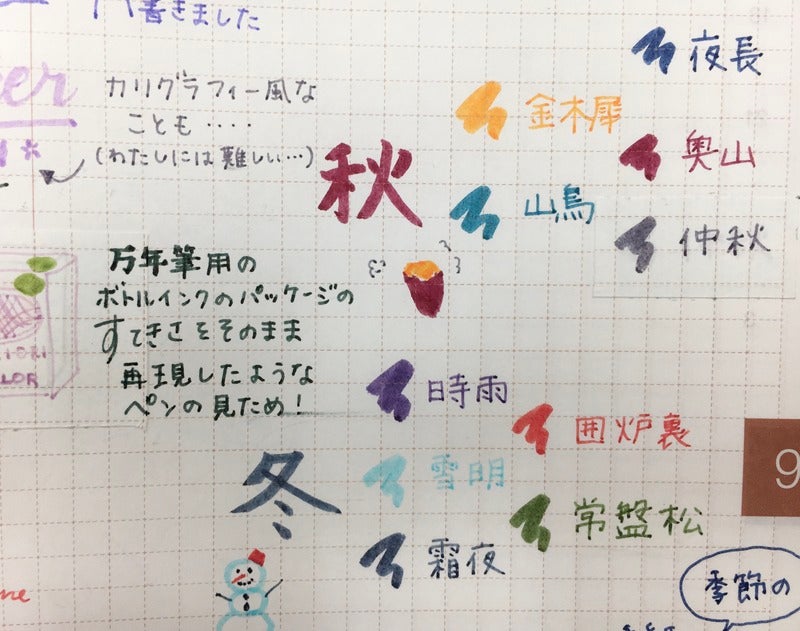 書きました
カリグラフィー風な
ことも‥‥
(わたしには難しい…)
秋
夜長
金木犀
奥山
山鳥
仲秋
万年筆用の
ボトルインクのパッケージの
すてきさをそのまま
再現したような
ペンの見ため!
時雨
囲炉裏
冬
雪明
常盤松
霜夜
9
季節の